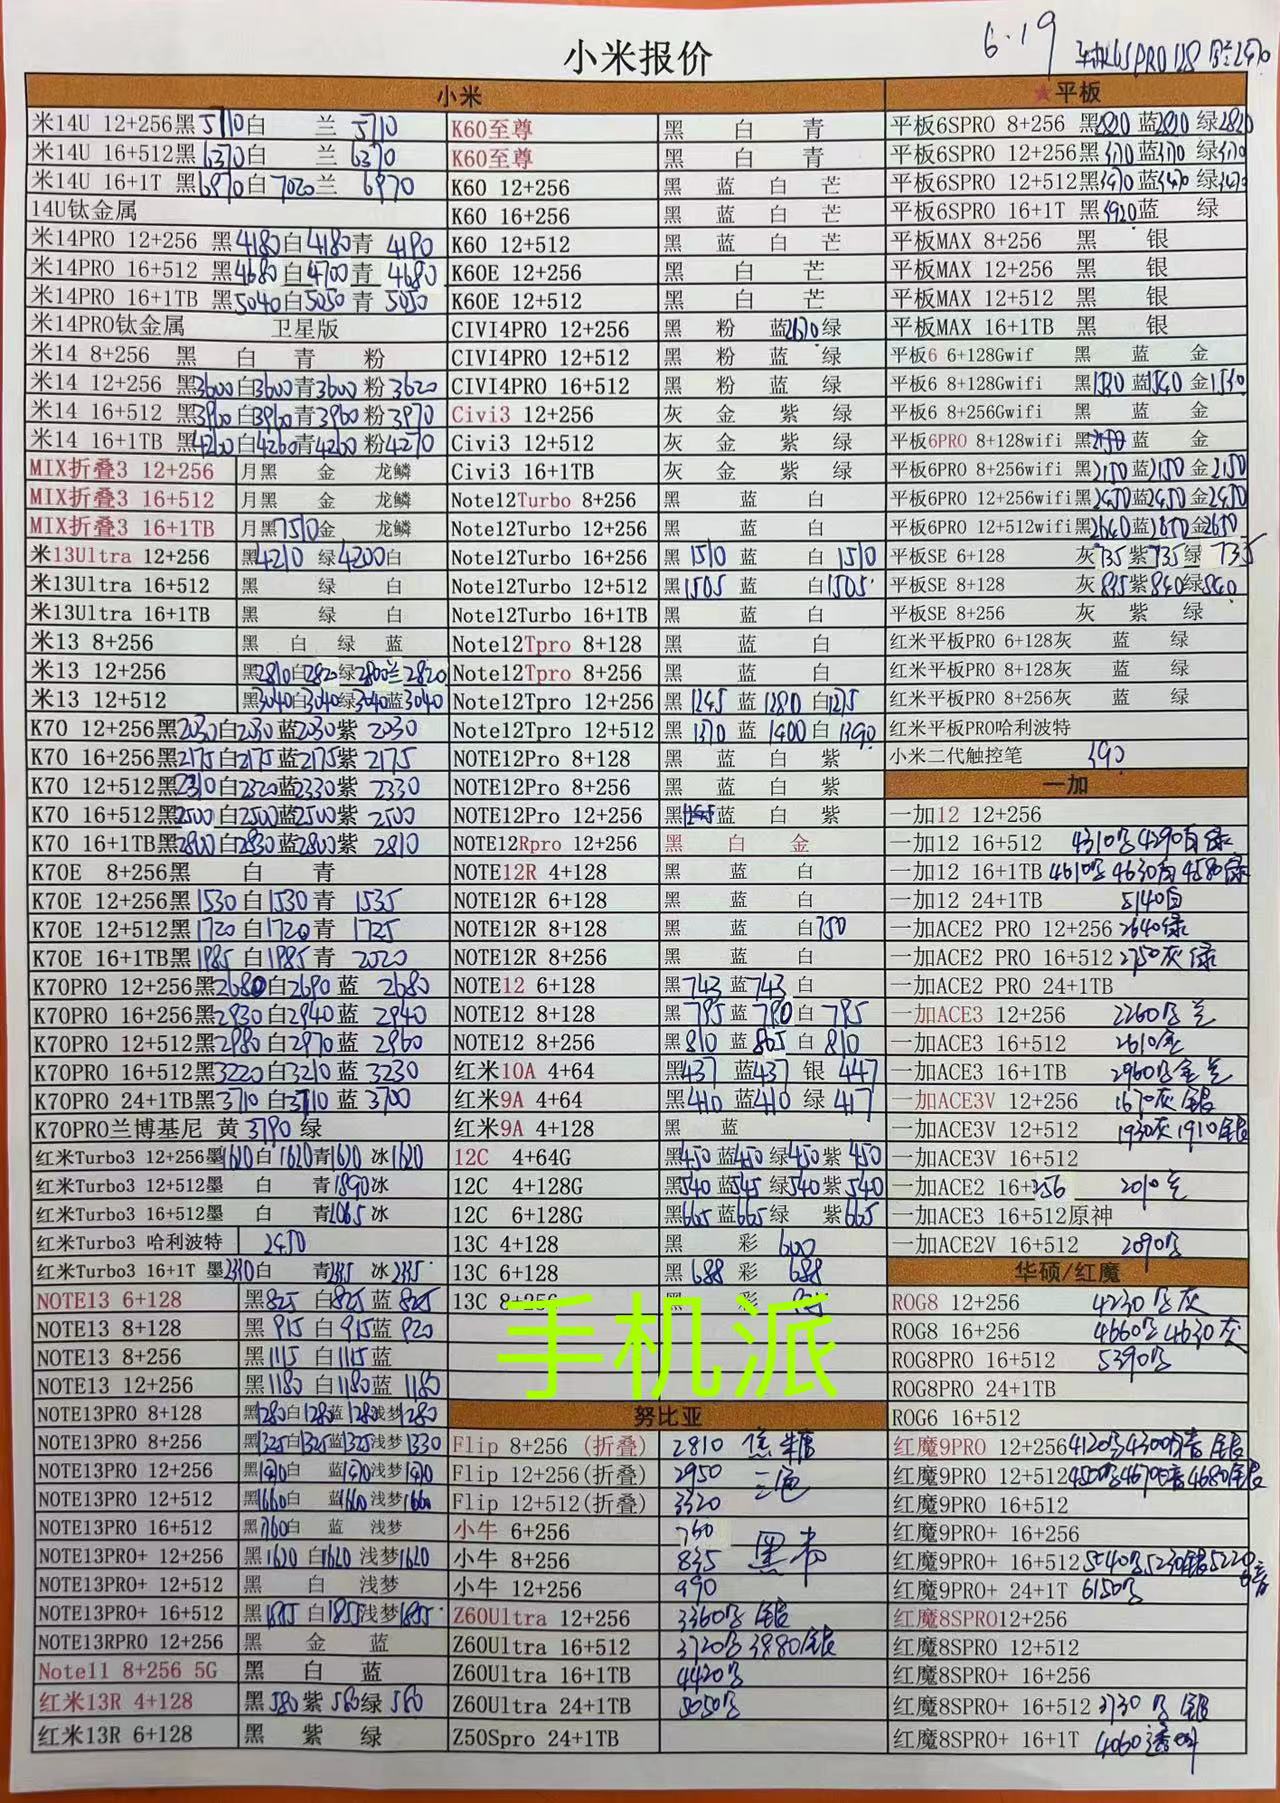 小米报价
6.19
小米
米14U 12+256黑5710白 兰 5710
米14U 16+512黑6370白 兰 6370
米14U 16+1T 黑6970白7020兰 6970
14U钛金属
米14PRO 12+256 黑4180白4180青 4190
米14PRO 16+512 黑4680白4700青 4680
米14PRO 16+1TB 黑5040白5050青 5050
米14PRO钛金属 卫星版
米14 8+256 黑 白 青 粉
米14 12+256 黑3600白3600青3600粉3620
米14 16+512 黑3960白3960青3960粉3970
米14 16+1TB 黑4260白4260青4260粉4270
MIX折叠3 12+256 月黑 金 龙鳞
MIX折叠3 16+512 月黑 金 龙鳞
MIX折叠3 16+1TB 月黑7510金 龙鳞
米13Ultra 12+256 黑4210 绿4200白
米13Ultra 16+512 黑 绿 白
米13Ultra 16+1TB 黑 绿 白
米13 8+256 黑 白 绿 蓝
米13 12+256 黑2810白2820绿2800兰2820
米13 12+512 黑3040白3040绿3040蓝3040
K70 12+256黑2030白2030蓝2030紫 2030
K70 16+256黑2175白2175蓝2175紫 2175
K70 12+512黑2310白2320蓝2330紫 2330
K70 16+512黑2500白2500蓝2500紫 2500
K70 16+1TB黑2800白2830蓝2800紫 2810
K70E 8+256黑 白 青
K70E 12+256黑1530白1530青 1535
K70E 12+512黑1720白1720青 1725
K70E 16+1TB黑1985白1985青 2020
K70PRO 12+256黑2680白2690蓝 2680
K70PRO 16+256黑2930白2940蓝 2940
K70PRO 12+512黑2980白2970蓝 2960
K70PRO 16+512黑3220白3210蓝 3230
K70PRO 24+1TB黑3710白3710蓝 3700
K70PRO兰博基尼 黄3790绿
红米Turbo3 12+256墨1620白1620青1620冰1620
红米Turbo3 12+512墨 白 青1890冰
红米Turbo3 16+512墨 白 青2065冰
红米Turbo3 哈利波特 2450
红米Turbo3 16+1T 墨2330白 青2335 冰2335
NOTE13 6+128 黑825 白825蓝825
NOTE13 8+128 黑915 白915蓝920
NOTE13 8+256 黑1115 白1115蓝
NOTE13 12+256 黑1180白1180蓝1180
NOTE13PRO 8+128 黑1280白1280蓝1280浅梦1280
NOTE13PRO 8+256 黑1325白1325蓝1325浅梦1330
NOTE13PRO 12+256 白 蓝 浅梦
NOTE13PRO 12+512 黑1660白 蓝1660浅梦1660
NOTE13PRO 16+512 黑1760白 蓝 浅梦
NOTE13PRO+ 12+256 黑1620 白1620浅梦1620
NOTE13PRO+ 12+512 黑 白 浅梦
NOTE13PRO+ 16+512 黑1855白1855浅梦1855
NOTE13RPRO 12+256 黑 金 蓝
Note11 8+256 5G 黑 白 蓝
红米13R 4+128 黑580紫560绿560
红米13R 6+128 黑 紫 绿
K60至尊 黑 白 青
K60至尊 黑 白 青
K60 12+256 黑 蓝 白 芒
K60 16+256 黑 蓝 白 芒
K60 12+512 黑 蓝 白 芒
K60E 12+256 黑 白 芒
K60E 12+512 黑 白 芒
CIVI4PRO 12+256 黑 粉 蓝2670绿
CIVI4PRO 12+512 黑 粉 蓝 绿
CIVI4PRO 16+512 黑 粉 蓝 绿
Civi3 12+256 灰 金 紫 绿
Civi3 12+512 灰 金 紫 绿
Civi3 16+1TB 灰 金 紫 绿
Note12Turbo 8+256 黑 蓝 白
Note12Turbo 12+256 黑 蓝 白
Note12Turbo 16+256 黑1510 蓝 白 1510
Note12Turbo 12+512 黑1505 蓝 白1505
Note12Turbo 16+1TB 黑 蓝 白
Note12Tpro 8+128 黑 蓝 白
Note12Tpro 8+256 黑 蓝 白
Note12Tpro 12+256 黑1245 蓝1280 白1275
Note12Tpro 12+512 黑 1370 蓝 1400白1390
NOTE12Pro 8+128 黑 蓝 白 紫
NOTE12Pro 8+256 黑 蓝 白 紫
NOTE12Pro 12+256 黑 蓝 白 紫
NOTE12Rpro 12+256 黑 白 金
NOTE12R 4+128 黑 蓝 白
NOTE12R 6+128 黑 蓝 白
NOTE12R 8+128 黑 蓝 白750
NOTE12R 8+256 黑 蓝 白
NOTE12 6+128 黑743蓝743 白
NOTE12 8+128 黑795蓝780白795
NOTE12 8+256 黑810 蓝 865 白 810
红米10A 4+64 黑437 蓝437 银 447
红米9A 4+64 黑410 蓝410 绿 417
红米9A 4+128 黑 蓝
12C 4+64G 黑450蓝450绿450紫450
12C 4+128G 黑540蓝545绿540紫540
12C 6+128G 黑665蓝665绿 紫665
13C 4+128 黑 彩 600
13C 6+128 黑 688 彩 688
13C 8+256 黑 彩
手机派
努比亚
Flip 8+256 (折叠) 2810 焦糖
Flip 12+256(折叠) 2950 三色
Flip 12+512(折叠) 3320
小牛 6+256 760
小牛 8+256 835 黑 希
小牛 12+256 990
Z60Ultra 12+256 3360 银
Z60Ultra 16+512 3720 3880银
Z60Ultra 16+1TB 4420
Z60Ultra 24+1TB 5050
Z50Spro 24+1TB
★平板
平板6SPRO 8+256 黑2820蓝2810绿2820
平板6SPRO 12+256黑3170蓝3170绿3170
平板6SPRO 12+512黑3470蓝3470绿3470
平板6SPRO 16+1T 黑3920蓝 绿
平板MAX 8+256 黑 银
平板MAX 12+256 黑 银
平板MAX 12+512 黑 银
平板MAX 16+1TB 黑 银
平板6 6+128Gwif 黑 蓝 金
平板6 8+128Gwifi 黑1530蓝1540金1530
平板6 8+256Gwifi 黑 蓝 金
平板6PRO 8+128wifi 黑 蓝 金
平板6PRO 8+256wifi 黑2150蓝2150金2150
平板6PRO 12+256wifi黑2450蓝2450金2450
平板6PRO 12+512wifi黑2640蓝2650金2650
平板SE 6+128 灰735紫735绿 735
平板SE 8+128 灰835紫840绿840
平板SE 8+256 灰 紫 绿
红米平板PRO 6+128灰 蓝 绿
红米平板PRO 8+128灰 蓝 绿
红米平板PRO 8+256灰 蓝 绿
红米平板PRO哈利波特
小米二代触控笔 390
一加
一加12 12+256
一加12 16+512 4310 4290白绿
一加12 16+1TB 4610 4630白4580绿
一加12 24+1TB 5140白
一加ACE2 PRO 12+256 2640绿
一加ACE2 PRO 16+512 2750灰绿
一加ACE2 PRO 24+1TB
一加ACE3 12+256 2260 兰
一加ACE3 16+512 2610金
一加ACE3 16+1TB 2960 金兰
一加ACE3V 12+256 1670灰 银
一加ACE3V 12+512 1930灰1910银
一加ACE3V 16+512
一加ACE2 16+256 2010兰
一加ACE3 16+512原神
一加ACE2V 16+512 2090
华硕/红魔
ROG8 12+256 4230 灰
ROG8 16+256 4660 4630灰
ROG8PRO 16+512 5390
ROG8PRO 24+1TB
ROG6 16+512
红魔9PRO 12+256 4120 4300 银
红魔9PRO 12+512 4500 4670 4680银
红魔9PRO 16+512
红魔9PRO+ 16+256
红魔9PRO+ 16+512 5540 5230银5220
红魔9PRO+ 24+1T 6150
红魔8SPRO12+256
红魔8SPRO 12+512
红魔8SPRO+ 16+256
红魔8SPRO+ 16+512 3730 银
红魔8SPRO+ 16+1T 4060透明